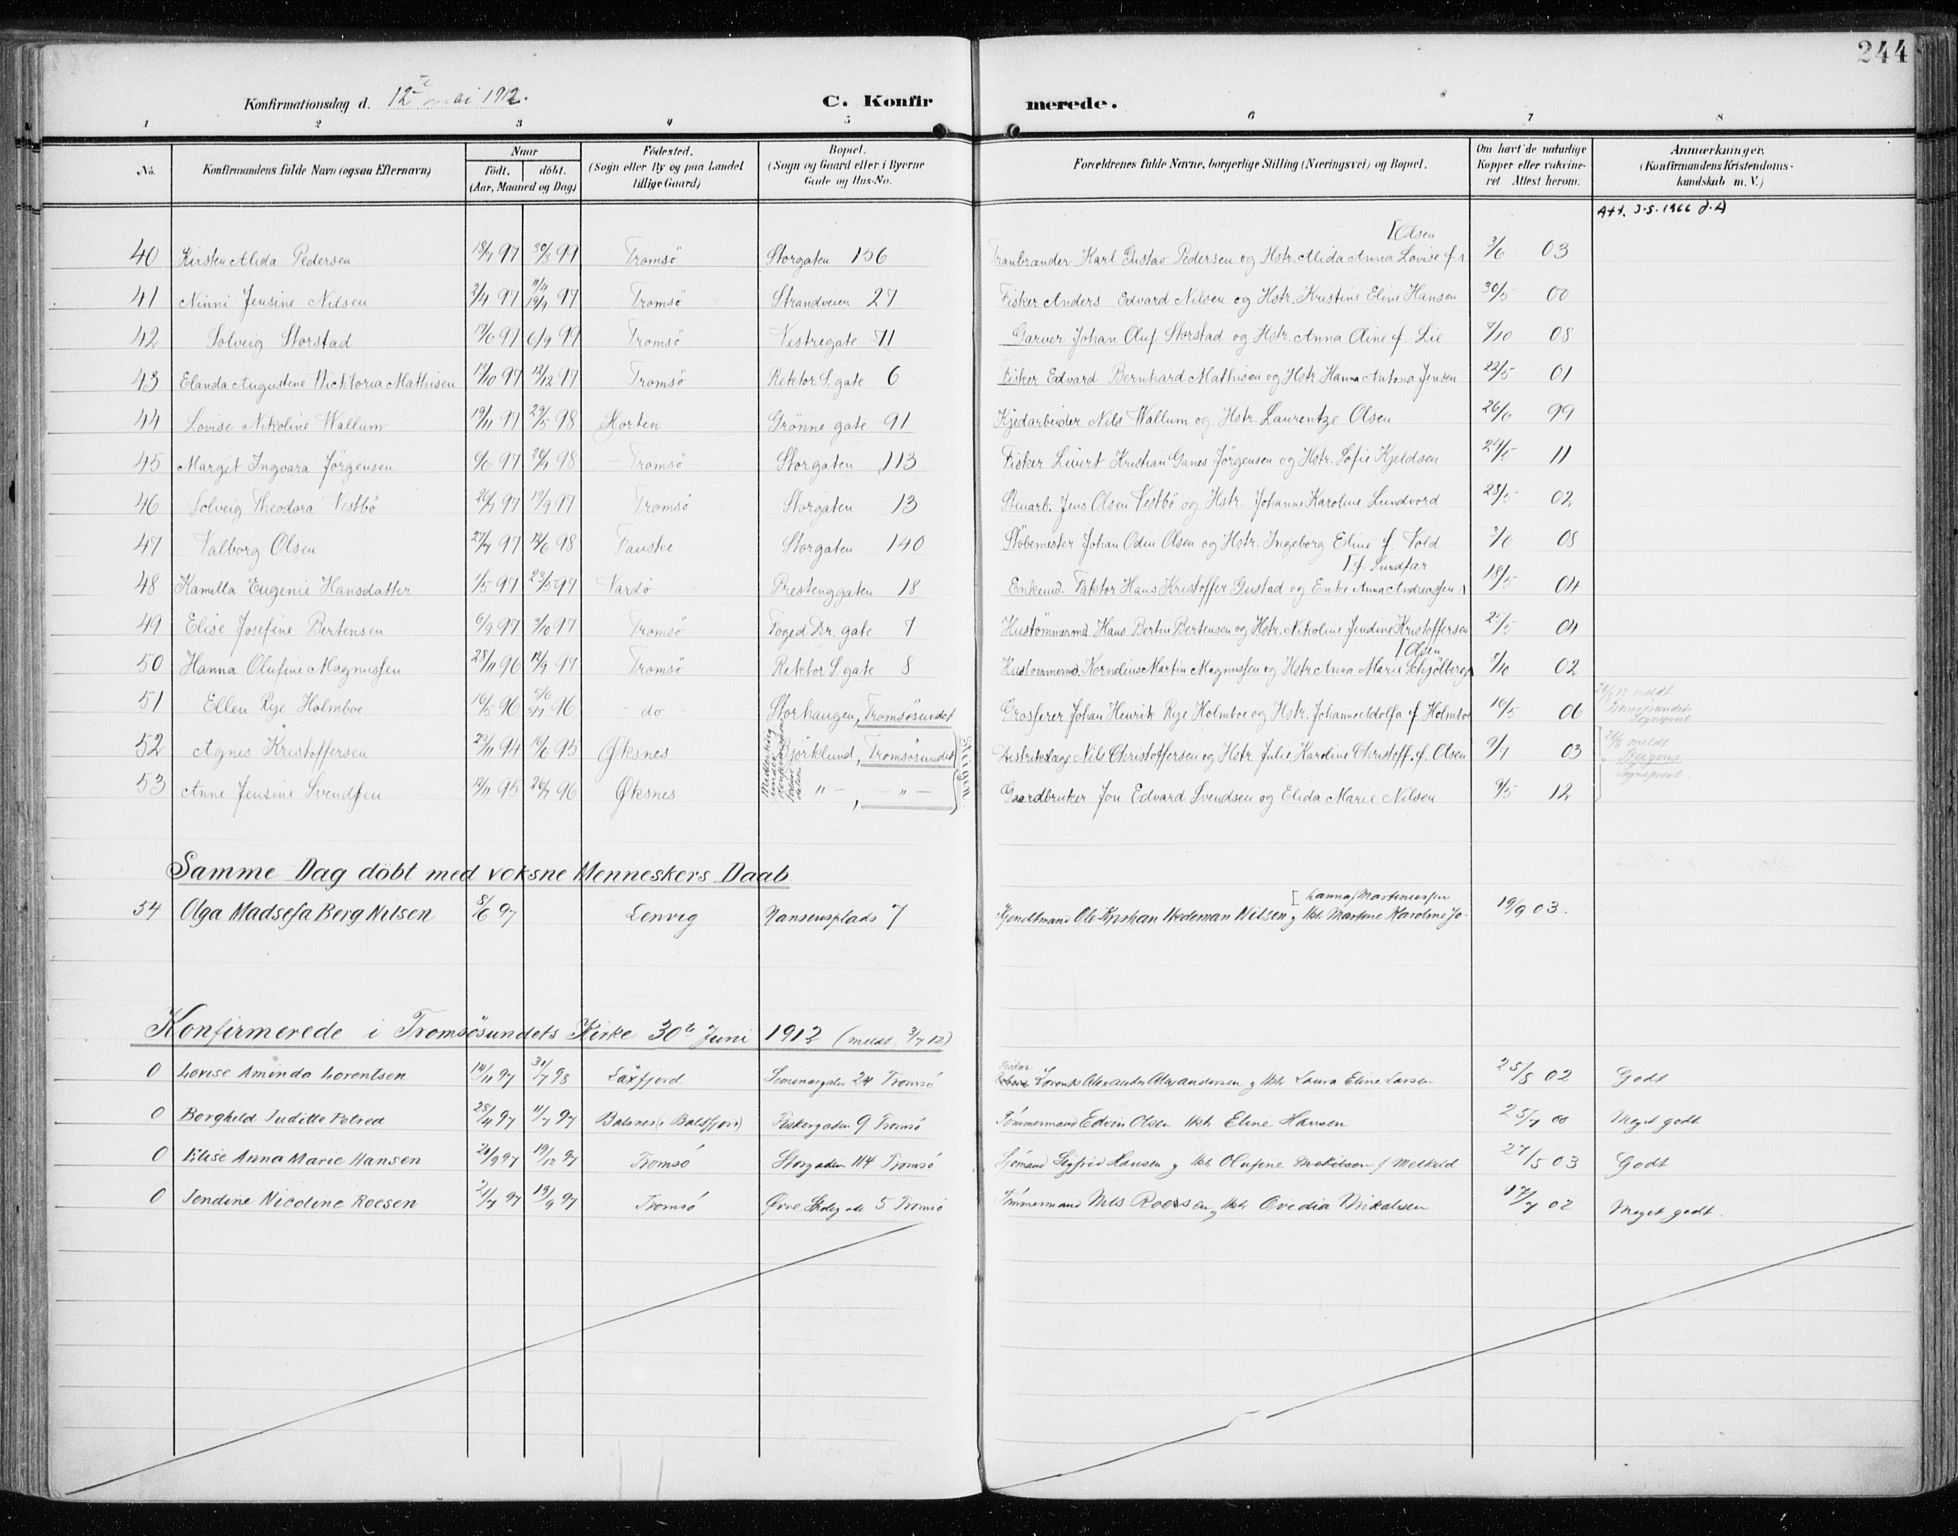 244
Konfirmationsdag d. 12te mai 1912. C. Konfirmerede.
1 2 3 4 5 6 7 8
No. Konfirmandens fulde Navn (ogsaa Efternavn) Naar Födt. döbt. (Aar, Maaned og Dag) Födested. (Sogn eller By og paa Landet tillige Gaard) Bopæl. (Sogn og Gaard eller i Byerne Gade og Hus-No. Forældrenes fulde Navne, borgerlige Stilling (Næringsvei) og Bopæl. Om havt de naturlige Kopper eller vaksineret Attest herom. Anmærkninger. (Konfirmandens Kristendomskundskab m. V.)
Att. 3-5-1966
40 Kirsten Alida Pedersen 18/7 97 30/3 99 Tromsö Storgaten 156 Tranbrænder Karl Gustav Pedersen og Hstr. Alida Anna Lovise f. [Olsen 3/6 03
41 Ninni Jensine Nilsen 2/4 97 97 Tromsö Strandveien 27 Fisker Anders Edvard Nilsen og Hstr. Kristine Eline Hansen 30/5 00
42 Solveig Storstad 17/6 97 6/9 99 Tromsö Vestregate 71 Garver Johan Oluf Storstad og Hstr. Anna Oline f. Lie 7/10 08
43 Elanda Augustine Wicktoria Mathisen 19/10 97 12/12 97 Tromsö Rektor S. gate 6 Fisker Edvard Bernhard Mathisen og Hstr. Hanna Antona Jensen 22/5 01
44 Lovise Nikoline Wallum 19/11 97 29/5 98 Horten Grönne gate 91 Kjedarbeider Nils Wallum og Hstr. Laurentze Olsen 26/6 99
45 Margit Ingvara Jörgensen 6/6 97 98 Tromsö Storgaten 113 Fisker Kristian Jörgensen og Hstr. Sofie Kjeldsen 11
46 Solveig Theodora Vestbö 97 19/9 97 Tromsö Storgaten 13 Stenarb. Jens Olsen Vestbö og Hstr. Johanne Karoline Lundvord 28/5 02
47 Valborg Olsen 27/7 97 12/6 98 Fauske Storgaten 140 Stöbemester Johan Odin Olsen og Hstr. Ingeborg Eline f. Vold 3/6 08
48 Kamilla Eugenie Hansdatter 1/5 97 23/5 97 Vardö Presteng gaten 18 Enkemd. Faktor Hans Kristoffer Gustad og Enke Anna Andreassen [f. Sundfær 18/5 04
49 Elise Josefine Bertensen 6/9 97 3/10 97 Tromsö Foged Dr. gate 7 Hustömmermd. Hans Berten Bertensen og Hstr. Nikoline Jendine Kristoffersen 25/5 04
50 Hanna Olufine Magnussen 28/11 96 97 Tromsö Rektor S. gate 8 Hustömmermd. Kornelius Martin Magnussen og Hstr. Anna Marie Schjölberg [Olsen 8/10 02
51 Ellen Rye Holmboe 16/5 96 96 - do - Storhaugen, Tromsösundet Grosserer Johan Henrik Rye Holmboe og Hstr. Johanne Adolfa f. Holmboe 10/5 06 meldt Tromsösundets Sogneprest
52 Agnes Kristoffersen 23/11 94 16/6 95 Øksnes Björklund, Tromsösundet Distriktslæge Nils Christoffersen og Hstr. Julie Karoline Christoff. f. Olsen 9/7 03 meldt Steigens Sogneprest.
53 Anne Jensine Svendsen 12/11 95 26/7 96 Øksnes " - , - " - Steigen. Gaardbruker Jon Edvard Svendsen og Elida Marie Nilsen 9/5 12
Samme Dag döbt med voksne Menneskers Daab
54 Olga Madsefa Berg Nilsen 8/6 97 Lenvig Nansensplads 7 Ole Kristian Wedeman Nilsen og Hstr Martine Karoline Jo-[hanna Martinussen 19/9 03.
Konfirmerede i Tromsösundets Kirke 30te Juni 1912 (meldt 3/7 12)
0 Lovise Aminda Lorentsen 14/11 97 31/7 98 Laxfjord Seminargaden 24 Tromsö Fisker Lorents Alexander Alexandersen og Hstr Laura Eline Larsen 25/5 02 Godt
0 Borghild Juditte Petrea 28/4 97 11/7 97 Balsnes i Balsfjord) Fiskergaden 9 Tromsö Tömmermand Edvin Olsen Hstr Eline Hansen 25/7 00 Meget godt
0 Elise Anna Marie Hansen 21/9 97 19/12 97 Tromsö Storgaden 114 Tromsö Sjömand Sigfrid Hansen og Hstr Olufine f Melkild 27/5 03 Godt
0 Jendine Nicoline Roesen 21/7 97 19/9 97 Tromsö Øvre 5 Tromsö Tömmermand Nils Roersen og Hstr Ovedia Nikalisen 17/7 02 Meget godt.